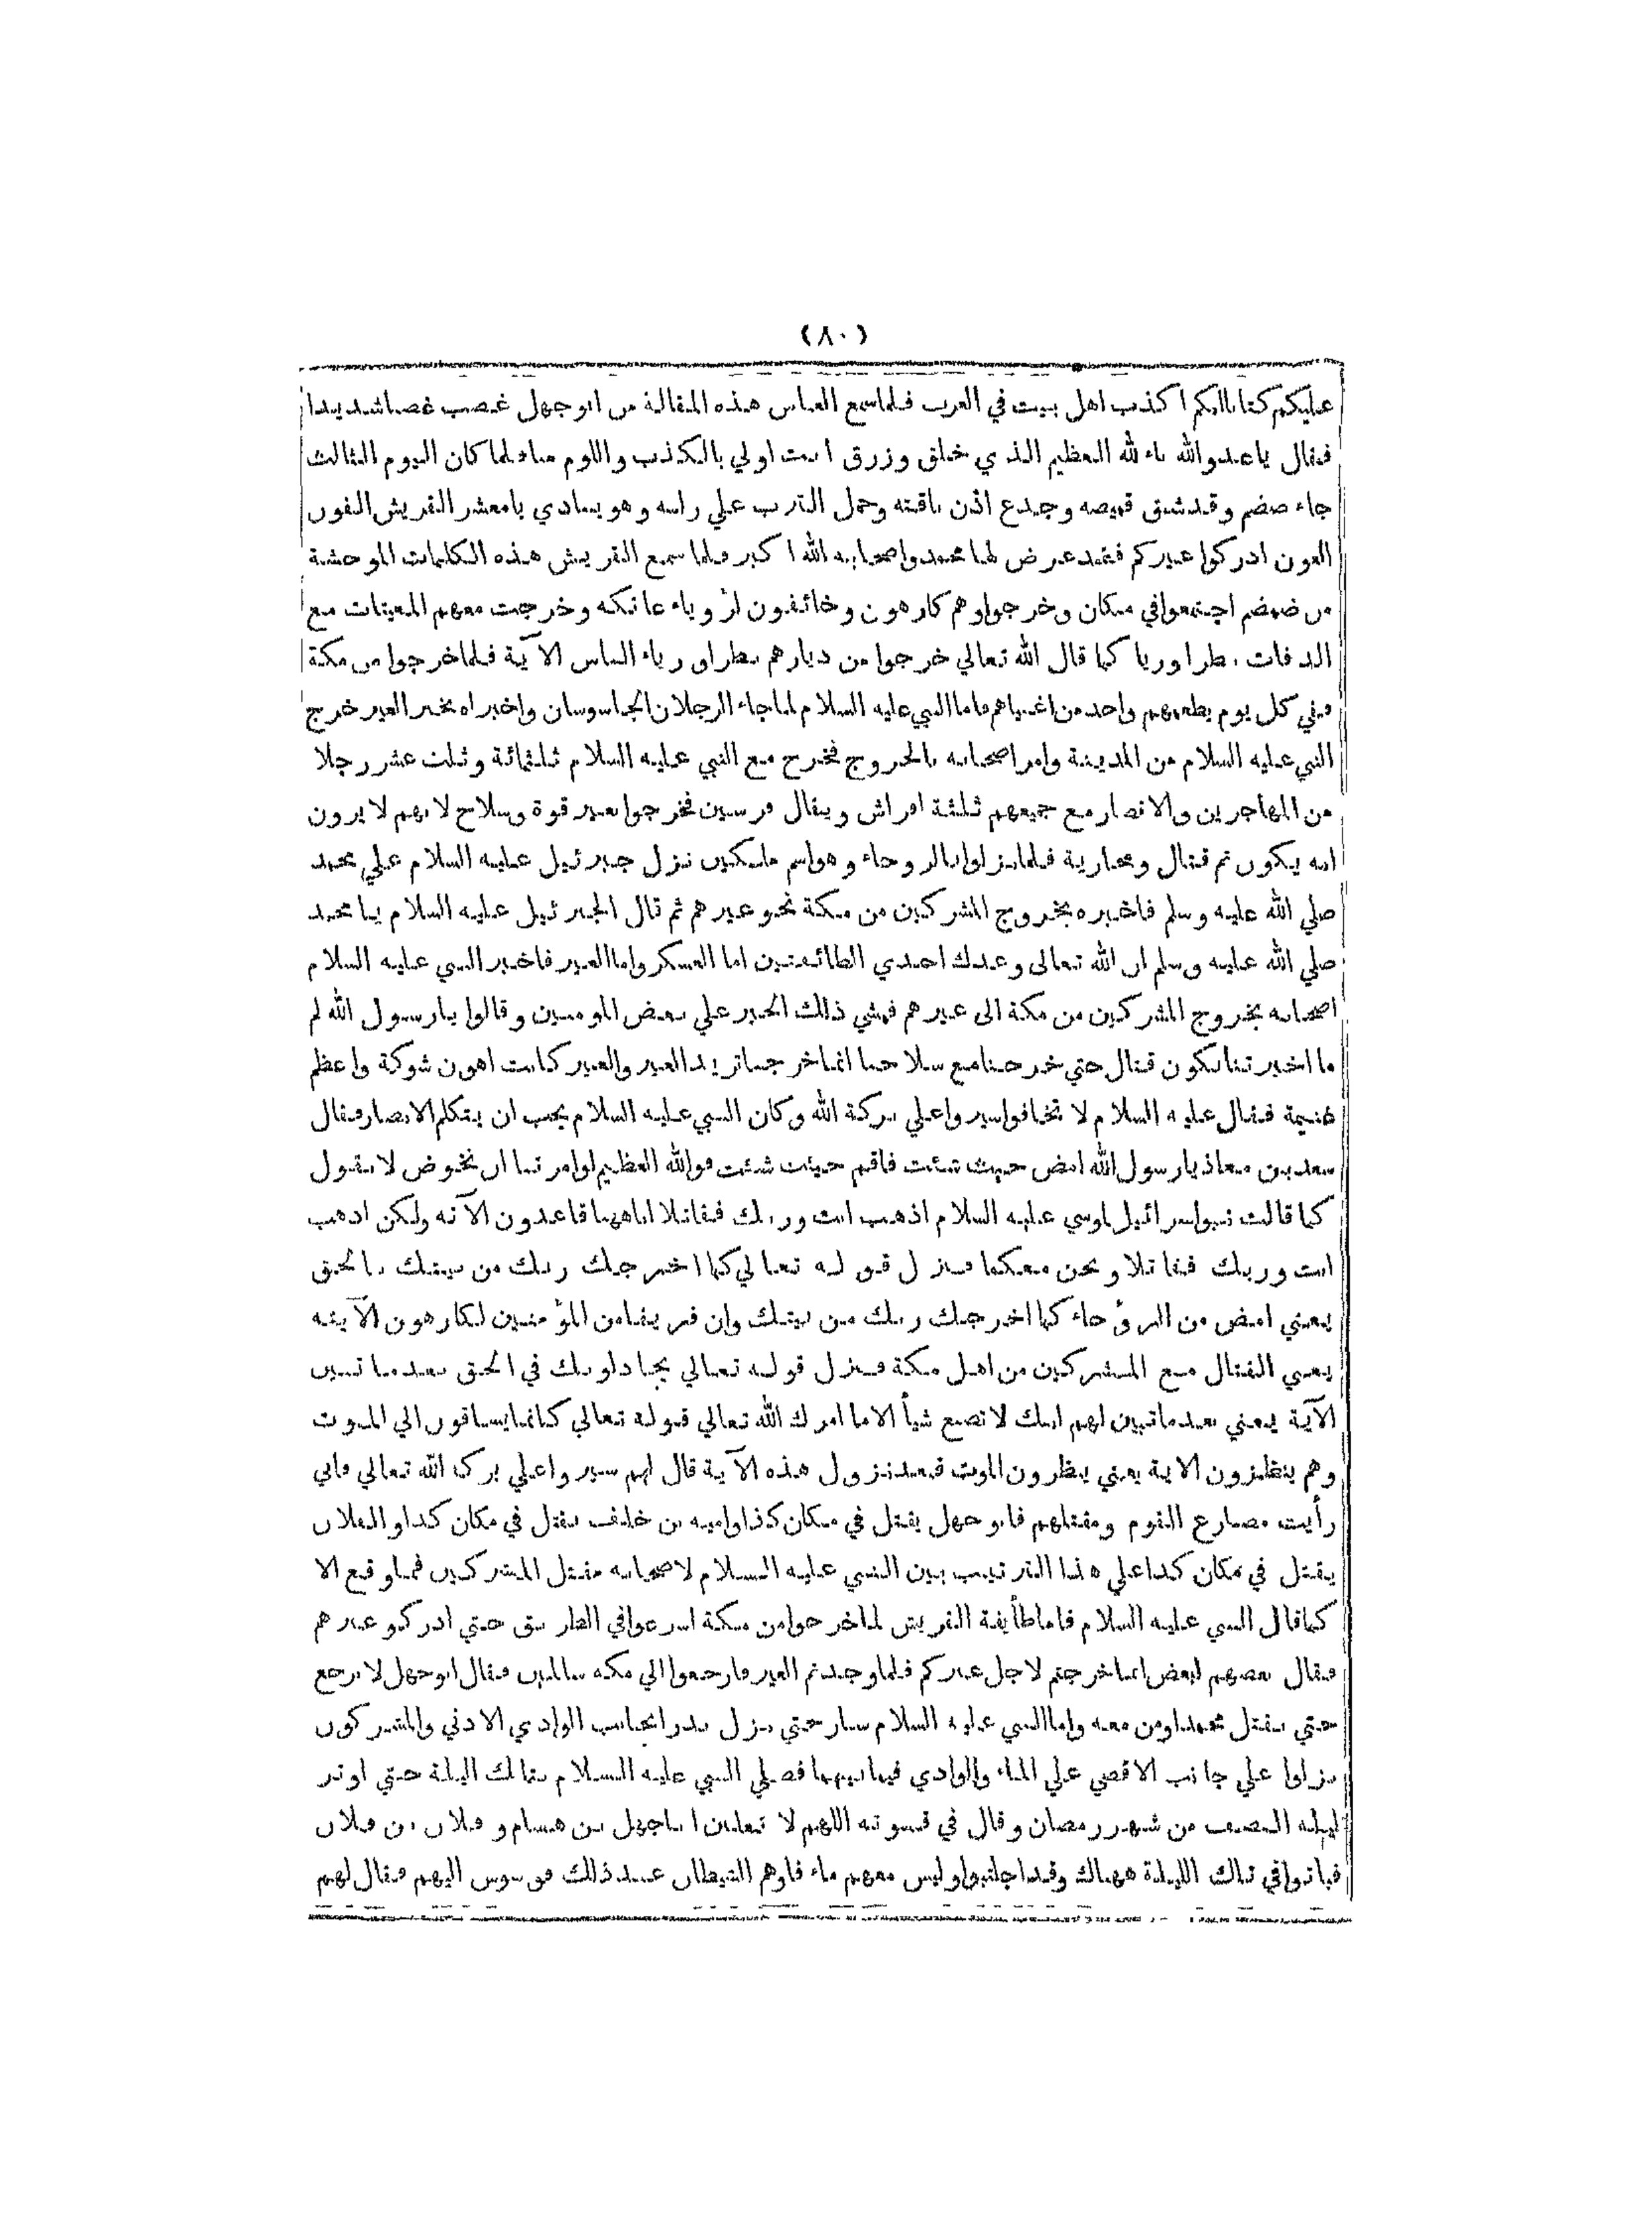 (٨٠)
عليكم كتابا انكم اكذب اهل بيت في العرب فلما سمع العباس هذه المقالة من ابوجهل غضب غضبا شديدا
فقال ياعدوالله باء لله العظيم الذي خلق وزرق انت اولي بالكذب واللوم منا فلما كان اليوم الثالث
جاء ضضم وقدشق قميصه وجدع اذن ناقته وحمل الترب علي راسه وهو ينادي يامعشر القريش الغوں
العون ادركوا عيركم فقد عرض لها محمد واصحابه الله اكبر فلما سمع القريش هذه الكلمات الموحشة
من ضمضم اجتمعوا في مكان وخرجوا وهم كارهون وخائفون لرؤياء عاتكه وخرجت معهم المغنيات مع
الدفات بطرا وريا كما قال الله تعالي خرجوا من ديارهم بطرا ورياء الناس الآية فلما خرجوا من مكة
ففي كل يوم يطعمهم واحد من اغنياهم فاما النبي عليه السلام لما جاء الرجلان الجاسوسان واخبراه بخبر العير خرج
النبي عليه السلام من المدينة وامر اصحابه بالخروج فخرج مع النبي عليه السلام ثلثمائة وثلث عشر رجلا
من المهاجرين والانصار مع جميعهم ثلثة افراش ويقال فرسين فخرجوا بغير قوة وسلاح لانهم لا يرون
انه يكون ثم قتال ومحاربة فلما نزلوا بالروحاء وهو اسم ماسكين نزل جبرئيل عليه السلام علي محمد
صلي الله عليه وسلم فاخبره بخروج المشركين من مكة نحو عيرهم ثم قال الجبرئيل عليه السلام يا محمد
صلي الله عليه وسلم ان الله تعالى وعدك احدي الطائفتين اما العسكر واما العير فاخبر النبي عليه السلام
اصحابه بخروج المشركين من مكة الى عيرهم فمشي ذالك الخبر علي بعض المومنين وقالوا يارسول الله لم
ما اخبرتنا نكون قتال حتي خرجنا مع سلاحنا انما خرجنا نريد العير والعير كانت اهون شوكة واعظم
غنيمة فقال عليه السلام لا تخافوا سيروا علي بركة الله وكان النبي عليه السلام يحب ان يتكلم الانصار فقال
سعد بن معاذ يارسول الله امض حيث شئت فاقم حيث شئت فوالله العظيم لو امرتنا ان نخوض لا نقول
كما قالت بنوا سرائيل لموسي عليه السلام اذهب انت وربك فقاتلا انا ههنا قاعدون الآنه ولكن اذهب
انت وربك فقاتلا ونحن معكما فنزل قوله تعالي كما اخرجك ربك من بيتك بالحق
يعني امض من الرؤحاء كما اخرجك ربك من بيتك وان فريقا من المؤمنين لكارهون الآيته
يعني القتال مع المشركين من اهل مكة فنزل قوله تعالي يجادلونك في الحق بعد ما تبين
الآية يعني بعد ما تبين لهم انك لا تصنع شيأ الا ما امرك الله تعالي قوله تعالي كانما يساقون الي الموت
وهم ينظرون الاية يعني ينظرون الموت فبعد نزول هذه الآية قال لهم سيروا علي برك الله تعالي فاني
رأيت مصارع القوم ومقتلهم فابوجهل يقتل في مكان كذا واميه بن خلف يقتل في مكان كدا والفلان
يقتل في مكان كدا علي هذا الترتيب بين النبي عليه السلام لاصحابه مقتل المشركين فما وقع الا
كما قال النبي عليه السلام فاما طأيفة القريش لما خرجوا من مكة اسرعوا في الطريق حتي ادركو عيرهم
فقال بعضهم لبعض انما خرجتم لاجل عيركم فلما وجدتم العير فارجعوا الي مكه سالمين فقال ابوجهل لا نرجع
حتي نقتل محمدا ومن معه واما النبي عليه السلام سار حتي نزل بدرا بجانب الوادي الادني والمشركون
نزلوا علي جانب الاقصي علي الماء والوادي فيما بينهما فصلي النبي عليه السلام بتالك اليلة حتي اوتر
ليله النصف من شهر رمضان وقال في قنوته اللهم لا تفلتن اباجهل بن هسام و فلان بن فلان
فباتوا في تالك الليلة ههناك وقد اجلنبوا وليس معهم ماء فاوهم الشيطان عند ذالك فوسوس اليهم فقال لهم